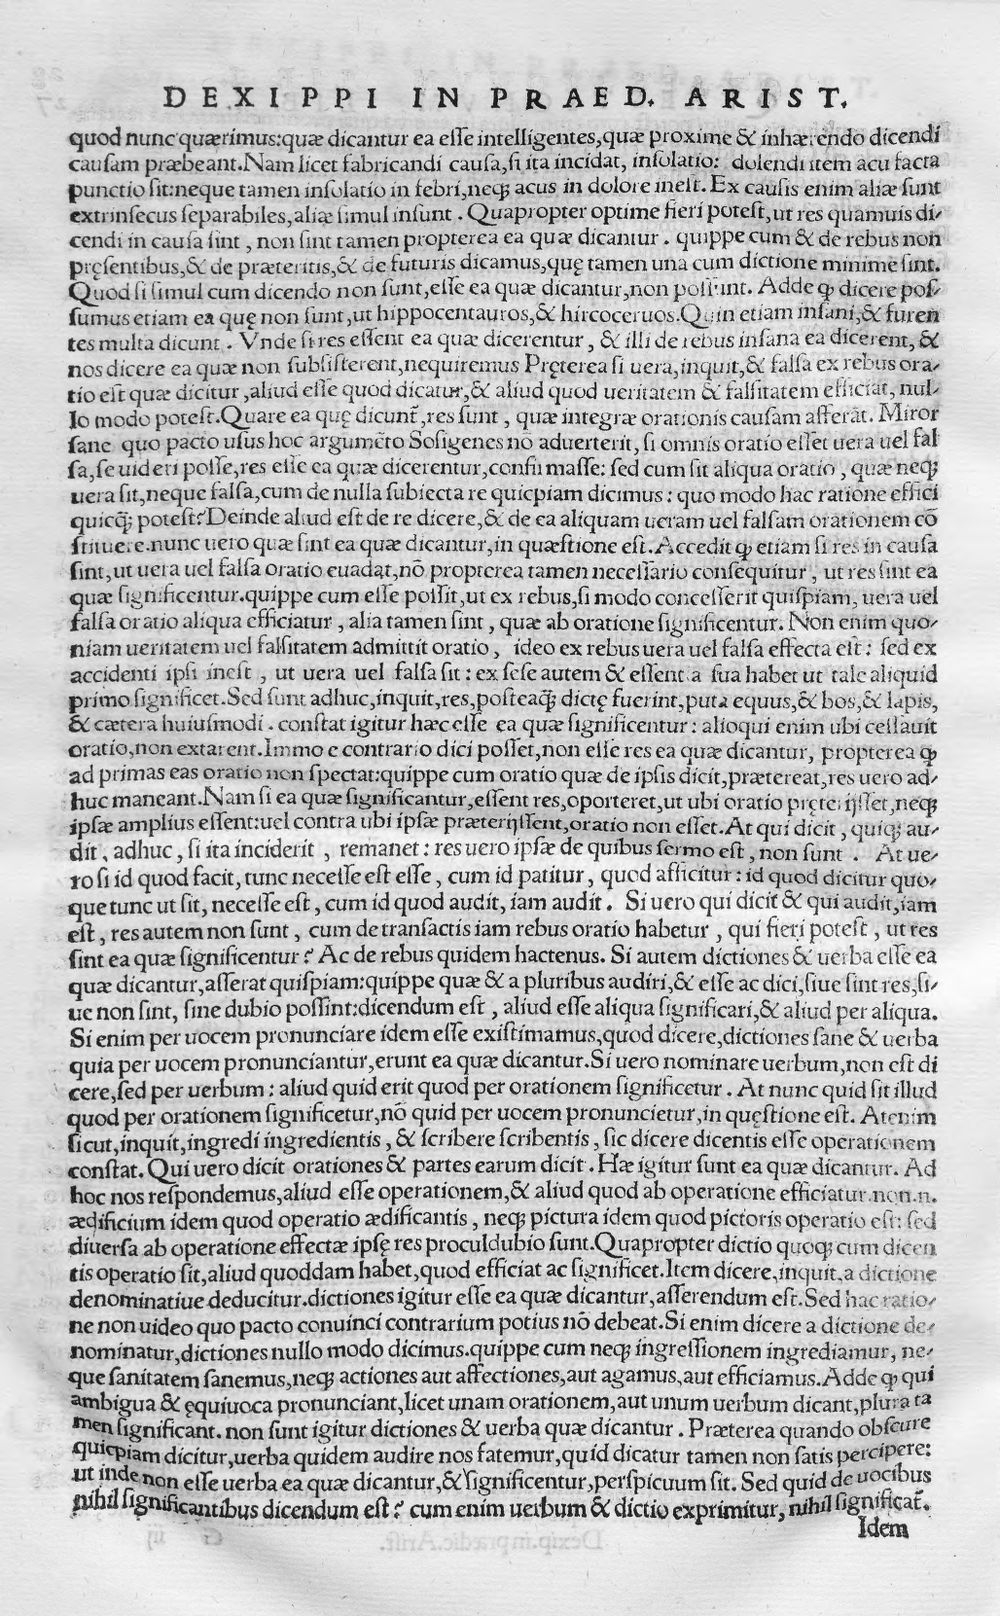 DEXIPPI IN PRAED. ARIST.
quod nunc quærimus: quæ dicantur ea esse intelligentes, quæ proxime & inhærendo dicendi
causam præbeant. Nam licet fabricandi causa, si ita incidat, insolatio: dolendi item acu facta
punctio sit: neque tamen insolatio in febri, neq; acus in dolore inest. Ex causis enim aliæ sunt
extrinsecus separabiles, aliæ simul insunt. Quapropter optime fieri potest, ut res quamuis di-
cendi in causa sint, non sint tamen propterea ea quæ dicantur. quippe cum & de rebus non
pręsentibus, & de præteritis, & de futuris dicamus, quę tamen una cum dictione minime sint.
Quod si simul cum dicendo non sunt, esse ea quæ dicantur, non possunt. Adde ꝙ dicere pos-
sumus etiam ea quę non sunt, ut hippocentauros, & hircoceruos. Quin etiam insani, & furen
tes multa dicunt. Vnde si res essent ea quæ dicerentur, & illi de rebus insana ea dicerent, &
nos dicere ea quæ non subsisterent, nequiremus Pręterea si uera, inquit, & falsa ex rebus ora-
tio est quæ dicitur, aliud esse quod dicatur, & aliud quod ueritatem & falsitatem efficiat, nul-
lo modo potest. Quare ea quę dicunt̃, res sunt, quæ integræ orationis causam afferāt. Miror
sane quo pacto usus hoc argumēto Sosigenes nō aduerterit, si omnis oratio esset uera uel fal
sa, se uideri posse, res esse ea quæ dicerentur, confirmasse: sed cum sit aliqua oratio, quæ neq;
uera sit, neque falsa, cum de nulla subiecta re quicpiam dicimus: quo modo hac ratione effici
quicq̃; potest? Deinde aliud est de re dicere, & de ea aliquam ueram uel falsam orationem cō
stituere. nunc uero quæ sint ea quæ dicantur, in quæstione est. Accedit ꝙ etiam si res in causa
sint, ut uera uel falsa oratio euadat, nō propterea tamen necessario consequitur, ut res sint ea
quæ significentur. quippe cum esse possit, ut ex rebus, si modo concesserit quispiam, uera uel
falsa oratio aliqua efficiatur, alia tamen sint, quæ ab oratione significentur. Non enim quo-
niam ueritatem uel falsitatem admittit oratio, ideo ex rebus uera uel falsa effecta est: sed ex
accidenti ipsi inest, ut uera uel falsa sit: ex sese autem & essentia sua habet ut tale aliquid
primo significet. Sed sunt adhuc, inquit, res, posteaq̃; dictę fuerint, puta equus, & bos, & lapis,
& cætera huiusmodi. constat igitur hæc esse ea quæ significentur: alioqui enim ubi cessauit
oratio, non extarent. Immo e contrario dici posset, non esse res ea quæ dicantur, propterea ꝙ
ad primas eas oratio non spectat: quippe cum oratio quæ de ipsis dicit, prætereat, res uero ad-
huc maneant. Nam si ea quæ significantur, essent res, oporteret, ut ubi oratio pręterijsset, neq;
ipsæ amplius essent: uel contra ubi ipsæ præterijssent, oratio non esset. At qui dicit, quiq; au-
dit, adhuc, si ita inciderit, remanet: res uero ipsæ de quibus sermo est, non sunt. At ue-
ro si id quod facit, tunc necesse est esse, cum id patitur, quod afficitur: id quod dicitur quo-
que tunc ut sit, necesse est, cum id quod audit, iam audit. Si uero qui dicit & qui audit, iam
est, res autem non sunt, cum de transactis iam rebus oratio habetur, qui fieri potest, ut res
sint ea quæ significentur? Ac de rebus quidem hactenus. Si autem dictiones & uerba esse ea
quæ dicantur, asserat quispiam: quippe quæ & a pluribus audiri, & esse ac dici, siue sint res, si-
ue non sint, sine dubio possint: dicendum est, aliud esse aliqua significari, & aliud per aliqua.
Si enim per uocem pronunciare idem esse existimamus, quod dicere, dictiones sane & uerba
quia per uocem pronunciantur, erunt ea quæ dicantur. Si uero nominare uerbum, non est di
cere, sed per uerbum: aliud quid erit quod per orationem significetur. At nunc quid sit illud
quod per orationem significetur, nō quid per uocem pronuncietur, in quęstione est. At enim
sicut, inquit, ingredi ingredientis, & scribere scribentis, sic dicere dicentis esse operationem
constat. Qui uero dicit orationes & partes earum dicit. Hæ igitur sunt ea quæ dicantur. Ad
hoc nos respondemus, aliud esse operationem, & aliud quod ab operatione efficiatur. non. n.
ædificium idem quod operatio ædificantis, neq; pictura idem quod pictoris operatio est: sed
diuersa ab operatione effectæ ipsę res proculdubio sunt. Quapropter dictio quoq; cum dicen
tis operatio sit, aliud quoddam habet, quod efficiat ac significet. Item dicere, inquit, a dictione
denominatiue deducitur. dictiones igitur esse ea quæ dicantur, asserendum est. Sed hac ratio-
ne non uideo quo pacto conuinci contrarium potius nō debeat. Si enim dicere a dictione de-
nominatur, dictiones nullo modo dicimus. quippe cum neq; ingressionem ingrediamur, ne-
que sanitatem sanemus, neq; actiones aut affectiones, aut agamus, aut efficiamus. Adde ꝙ qui
ambigua & ęquiuoca pronunciant, licet unam orationem, aut unum uerbum dicant, plura ta
men significant. non sunt igitur dictiones & uerba quæ dicantur. Præterea quando obscure
quicpiam dicitur, uerba quidem audire nos fatemur, quid dicatur tamen non satis percipere:
ut inde non esse uerba ea quæ dicantur, & significentur, perspicuum sit. Sed quid de uocibus
nihil significantibus dicendum est? cum enim uerbum & dictio exprimitur, nihil significat̃.
Idem